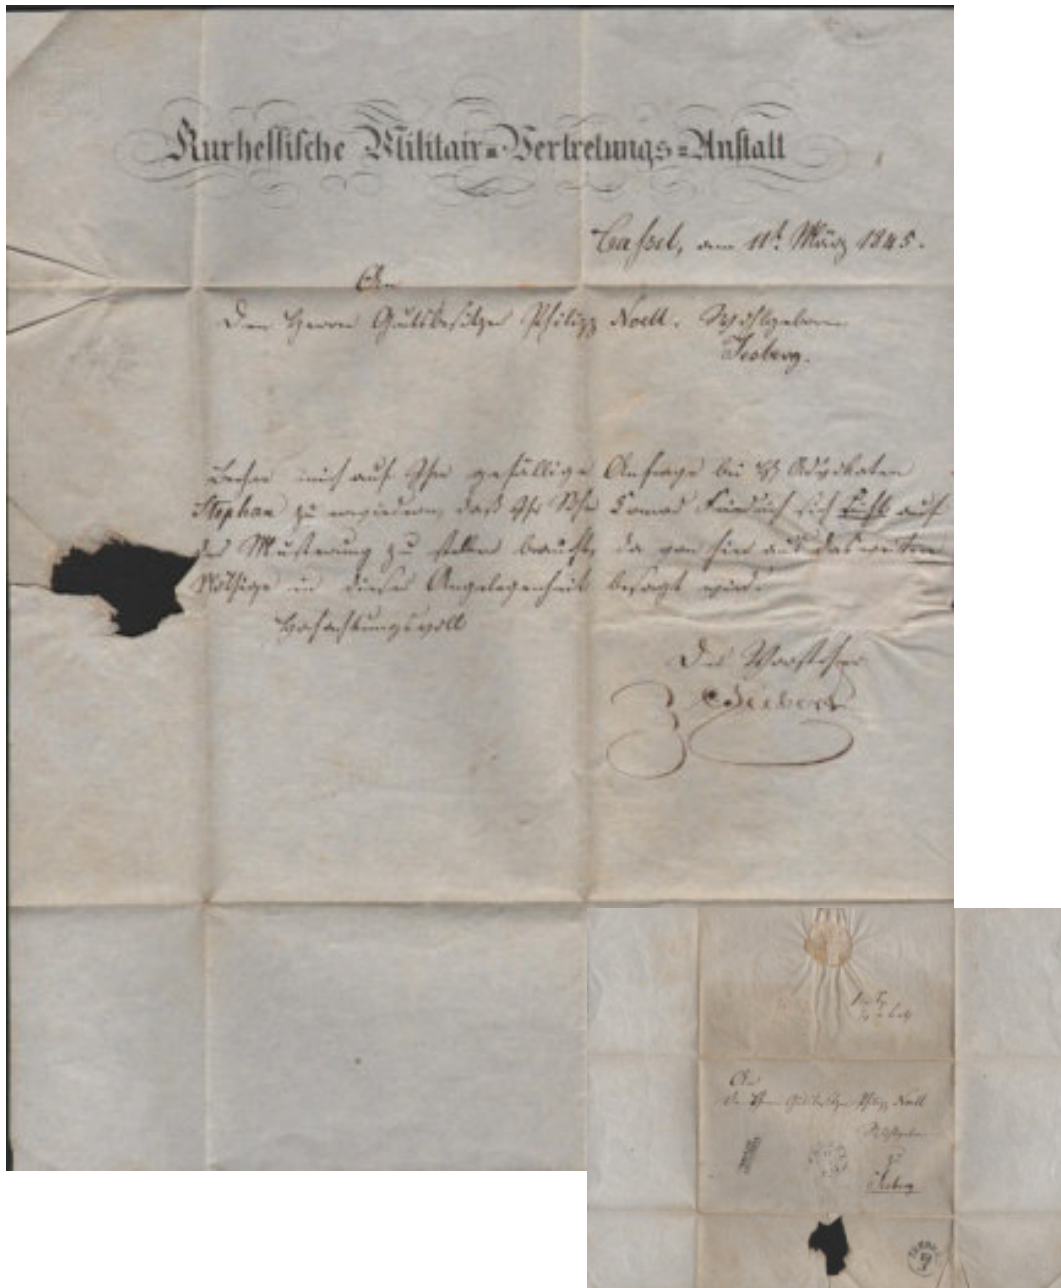 Kurhessische Militair-Vertretungs-Anstalt
Cassel, am 11t. März 1845.
An
Den Herrn Gutsbesitzer Philipp Noell. Wohlgeboren
Jesberg.
mich auf Ihre gefällige Anfrage bei Advokaten
Stephan zu erwiedern, daß Ihr Sohn Conrad Friedrich sich nicht auf
der Musterung zu stellen braucht, da von hier aus das weitere
Nöthige in dieser Angelegenheit besorgt wird.
Hochachtungsvoll
Der Vorsteher
Seibert
An
den Herrn Gutsbesitzer Philipp Noell
Wohlgeboren
zu
Jesberg